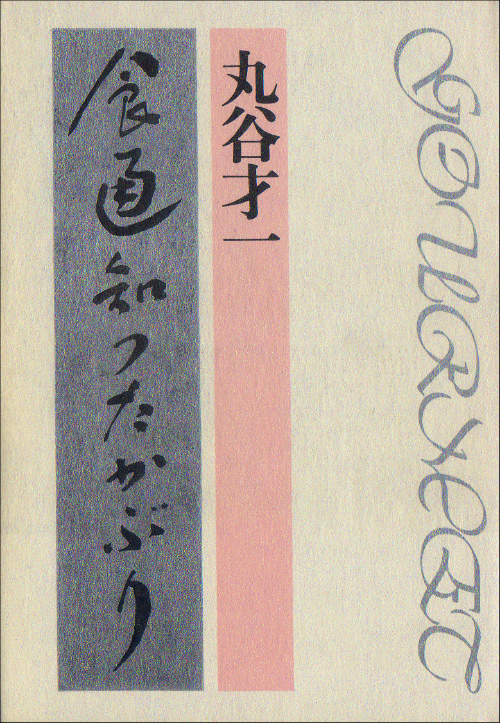 GOURMET
丸谷才一
食通知つたかぶり